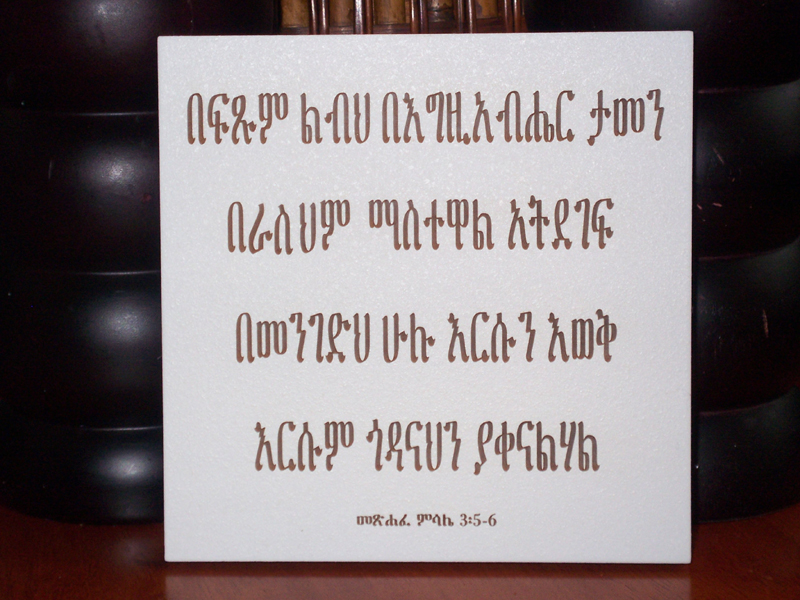 በፍጹም ልብህ በእግዚአብሔር ታመን
በራስህም ማስተዋል አትደገፍ
በመንገድህ ሁሉ እርሱን እወቅ
እርሱም ጎዳናህን ያቀናልሃል
መጽሐፈ ምሳሌ 3፡5-6